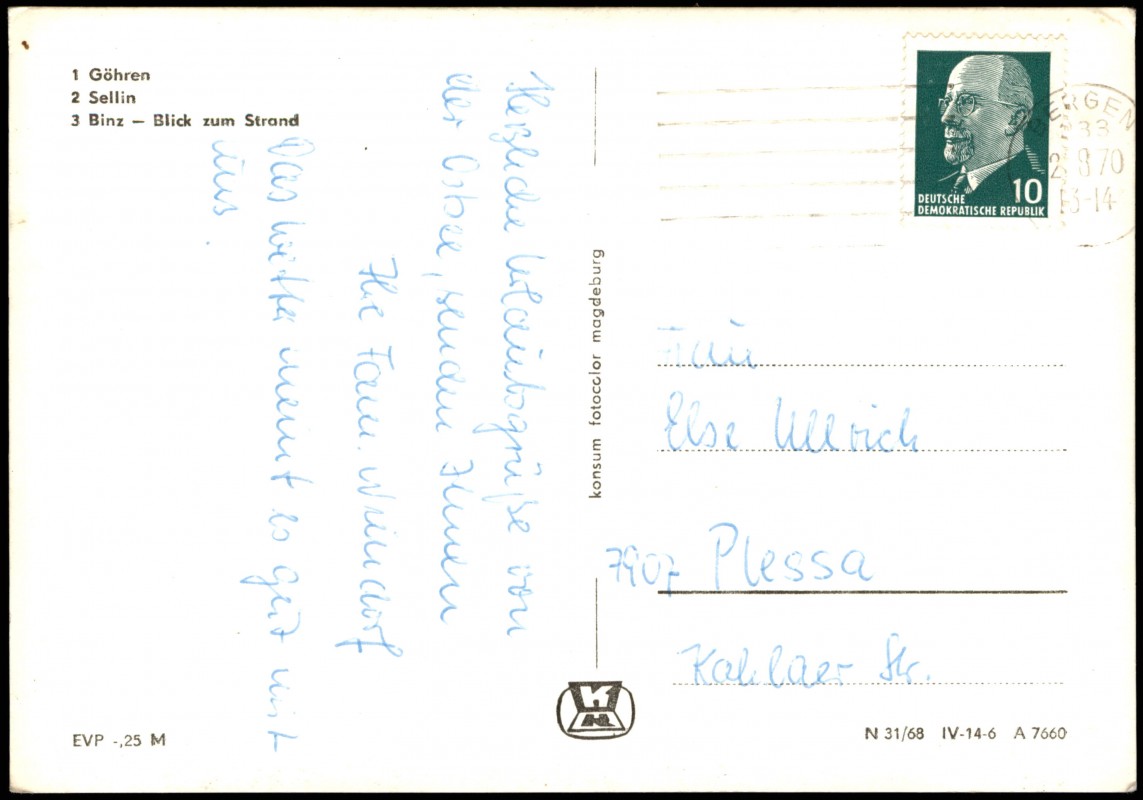 1 Göhren
2 Sellin
3 Binz — Blick zum Strand
Herzliche Urlaubsgrüße von
der Ostsee, senden Ihnen
Ihre Fam.
Das Wetter meint es gut mit
uns
konsum fotocolor magdeburg
DEUTSCHE
DEMOKRATISCHE REPUBLIK
10
BERGEN
8 70
13-14
Frau
Else Ullrich
7907 Plessa
Kahlaer Str.
EVP -,25 M
N 31/68 IV-14-6 A 7660